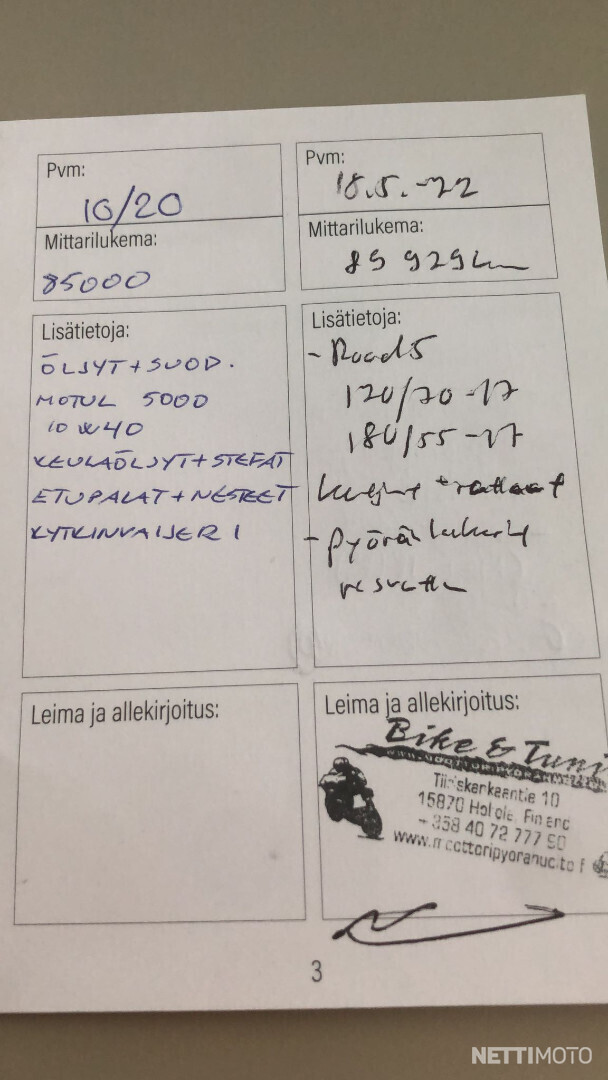 Pvm:
10/20
Mittarilukema:
85000
Lisätietoja:
ÖLJYT + SUOD.
MOTUL 5000
10W40
KEULAÖLJYT + STEFAT
ETUPALAT + NESTEET
KYTKINVAIJERI
Leima ja allekirjoitus:
Pvm:
18.5.-22
Mittarilukema:
89 929km
Lisätietoja:
- Road5
120/70-17
180/55-17
+ rattaat
- pyörän
Leima ja allekirjoitus:
Bike & Tuni
Tiiriskankaantie 10
15870 Hollola, Finland
+358 40 72 777 90
3
NETTIMOTO